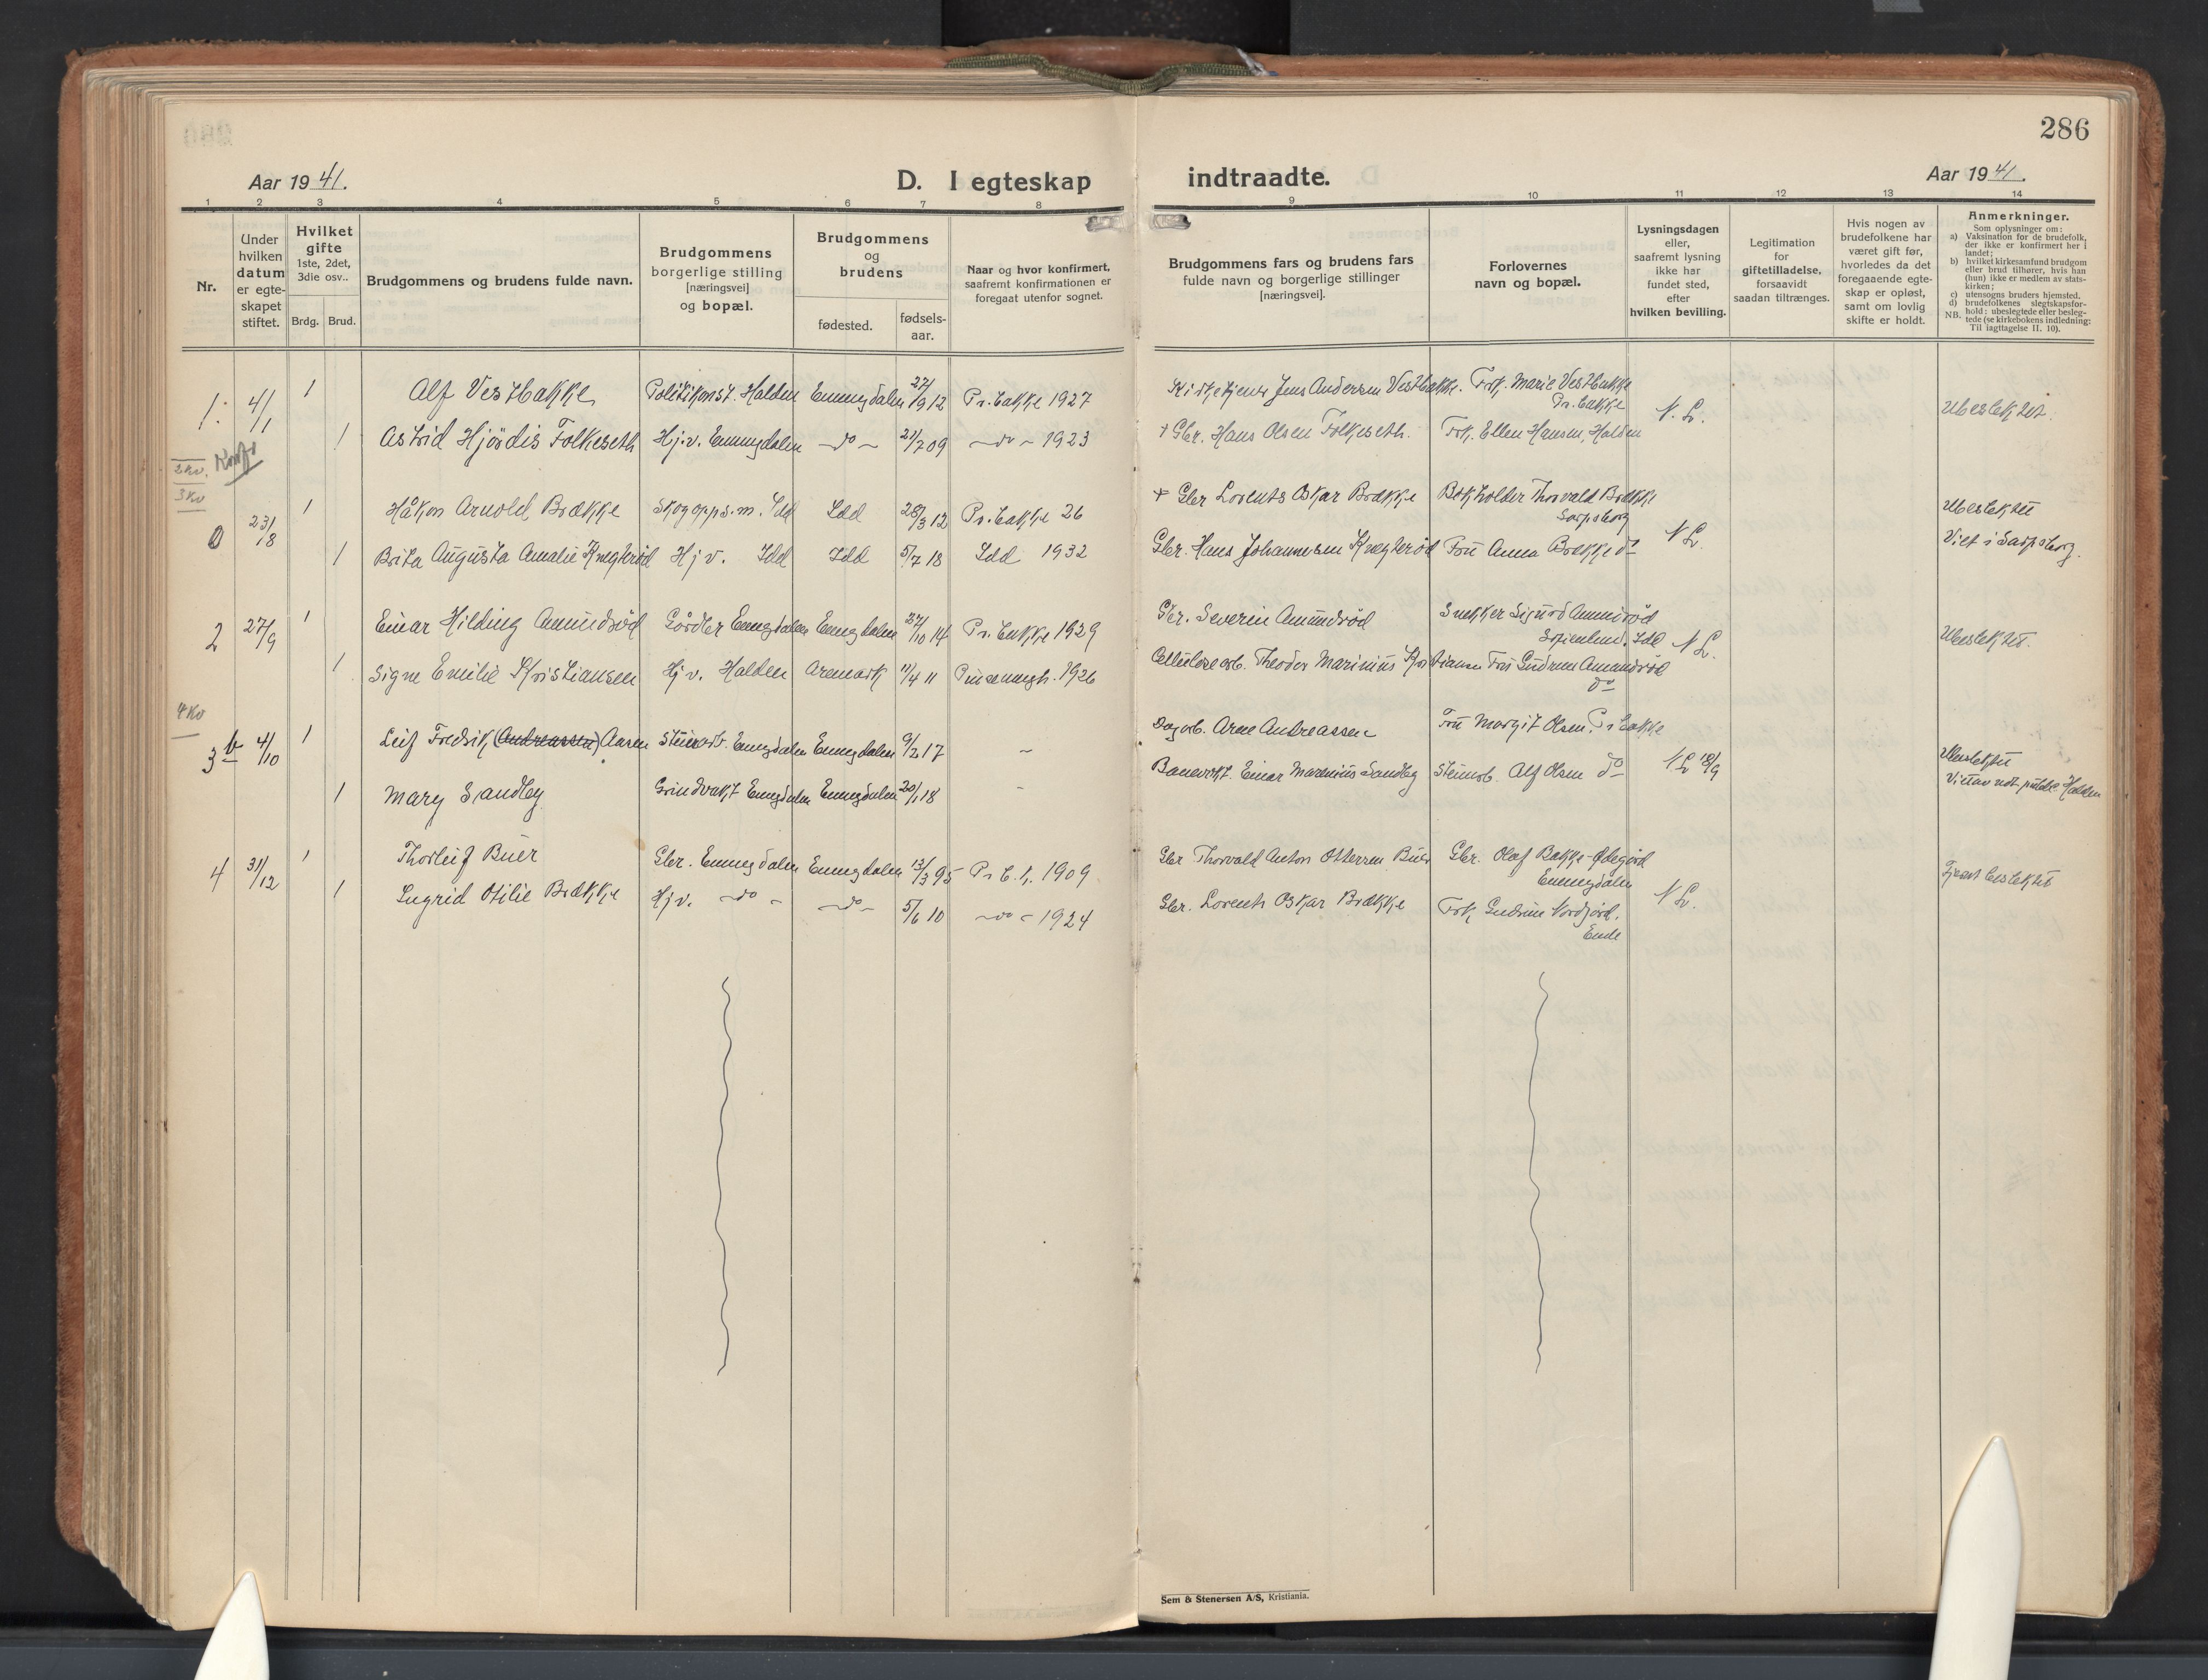 286
Aar 1941.
D. I egteskap indtraadte.
Aar 1941.
1 2 3 4 5 6 7 8 9 10 11 12 13 14
Nr.
Under
hvilken
datum
er egte-
skapet
stiftet.
Hvilket
gifte
1ste, 2det,
3die osv..
Brdg. Brud.
Brudgommens og brudens fulde navn.
Brudgommens
borgerlige stilling
[næringsvei]
og bopæl.
Brudgommens
og
brudens
fødested.
fødsels-
aar.
Naar og hvor konfirmert,
saafremt konfirmationen er
foregaat utenfor sognet.
Brudgommens fars og brudens fars
fulde navn og borgerlige stillinger
[næringsvei].
Forlovernes
navn og bopæl.
Lysningsdagen
eller,
saafremt lysning
ikke har
fundet sted,
efter
hvilken bevilling.
Legitimation
for
giftetilladelse,
forsaavidt
saadan tiltrænges.
Hvis nogen av
brudefolkene har
været gift før,
hvorledes da det
foregaaende egte-
skap er opløst,
samt om lovlig
skifte er holdt.
Anmerkninger.
Som oplysninger om:
a) Vaksination for de brudefolk,
der ikke er konfirmert her i
landet;
b) hvilket kirkesamfund brudgom
eller brud tilhører, hvis han
(hun) ikke er medlem av stats-
kirken;
c) utensogns bruders hjemsted.
d) brudefolkenes slegtskapsfor-
hold: ubeslegtede eller besleg-
NB. tede (se kirkebokens indledning:
Til iagttagelse II. 10).
1. 4/1 1 Alf Vestbakke Politikonst. Halden Enningdalen 22/9 12 Pr. bakke 1927 Kirketjener Jens Andersen Vestbakke. Frk. Marie Vestbakke
Pr. bakke N. L. Ubeslektet.
1 Astrid Hjördis Folkeseth Hj.v. Enningdalen -do- 21/2 09 -do- 1923 + Gbr. Hans Olsen Folkeseth. Frk. Ellen Hansen, Halden
2 kv.
3 kv
0 23/8 1 Håkon Arnold Brække Skogopps.m. Idd Idd 28/3 12 Pr. bakke 26 + Gbr Lorents Oskar Brække Bokholder Thorvald Brække
Sarpsborg N L. Ubeslektet
1 Brita Augusta Amalie Knegterød Hj v. Idd Idd 5/7 18 Idd 1932 Gbr. Hans Johannesen Knegterød Fru Anna Brække do Viet i Sarpsborg.
2 27/9 1 Einar Hilding Amundsrød Gårdbr Enningdalen Enningdalen 27/10 14 Pr. bakke 1929 Gbr. Severin Amundrød Snekker Sigurd Amundrød
Idd N L. Ubeslektet.
1 Signe Emilie Kristiansen Hj v. Halden Aremark 11/4 11 1926 Cellulosearb. Theodor Marinius Kristiansen Fru Gudrun Amundrød
do
4 kv
3 b 4/10 1 Leif Fredrik (Andreassen) Aasen Stenarb. Enningdalen Enningdalen 9/2 17 - Dagarb. Arne Andreassen Fru Margit Olsen. Pr bakke
N L 18/9 Ubeslektet
1 Mary Sandby Grindvakt Enningdalen Enningdalen 20/1 18 - Banevokt. Einar Marenius Sandby Stenarb. Alf Olsen do Halden
4 31/12 1 Thorleif Buer Gbr. Enningdalen Enningdalen 13/3 95 Pr b. k. 1909 Gbr Thorvald Anton Ottersen Buer Gbr. Olaf Bakke-Ødegård
Enningdalen N L. Fjernt beslektet
1 Ingrid Otilie Brække Hj v. -do- -do- 5/6 10 -do- 1924 Gbr. Lorents Oskar Brække Frk Gudrun Nordjord.
Ende
Sem & Stenersen A/S, Kristiania.